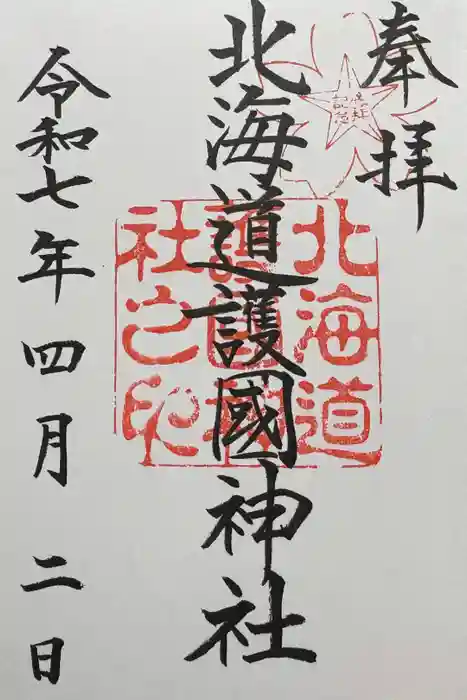 奉拝
北海道護國神社
令和七年四月二日
北海道
護國神
社之印